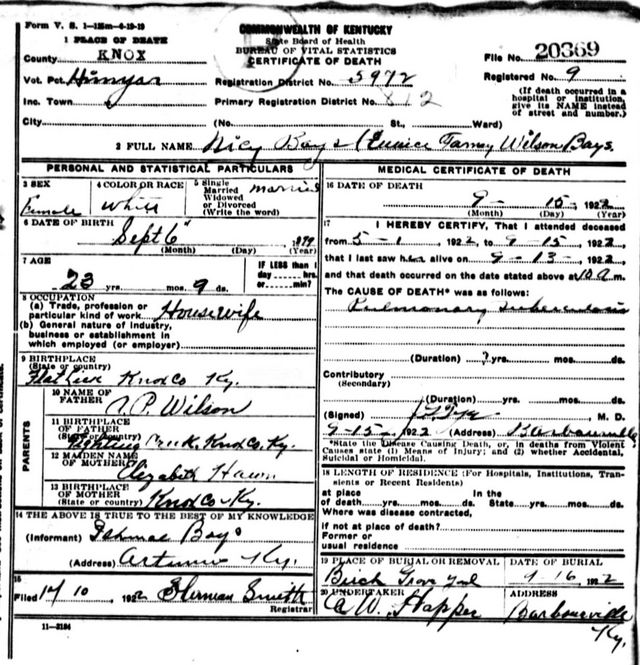 Form V. S. 1—125m—6-19-19
COMMONWEALTH OF KENTUCKY
State Board of Health
BUREAU OF VITAL STATISTICS
CERTIFICATE OF DEATH
1 PLACE OF DEATH
County KNOX
File No. 20369
Vot. Pct. Himyar
Registration District No. 5972
Registered No. 9
Inc. Town
Primary Registration District No. 812
(If death occurred in a hospital or institution, give its NAME instead of street and number.)
City (No. St., Ward)
2 FULL NAME Nicy Bays (Eunice Wilson Bays
PERSONAL AND STATISTICAL PARTICULARS
3 SEX Female
4 COLOR OR RACE White
5 Single Married Widowed or Divorced (Write the word) married
6 DATE OF BIRTH
Sept 6
(Month) (Day) (Year)
7 AGE
23 yrs. mos. 9 ds.
IF LESS than 1 day hrs. or min.?
8 OCCUPATION
(a) Trade, profession or particular kind of work Housewife
(b) General nature of industry, business or establishment in which employed (or employer)
9 BIRTHPLACE
(State or country)
Flat Lick Knox Co Ky.
PARENTS
10 NAME OF FATHER Wilson
11 BIRTHPLACE OF FATHER
(State or country) Creek, Knox Co, Ky.
12 MAIDEN NAME OF MOTHER Elizabeth
13 BIRTHPLACE OF MOTHER
(State or country) Knox Co Ky.
14 THE ABOVE IS TRUE TO THE BEST OF MY KNOWLEDGE
(Informant) Bays
(Address) Artemus Ky.
15
Filed 10, 192 Sherman Smith
Registrar
11—3184
MEDICAL CERTIFICATE OF DEATH
16 DATE OF DEATH
9 - 15 -, 1922
(Month) (Day) (Year)
17 I HEREBY CERTIFY, That I attended deceased
from 5-1, 1922, to 9-15, 1922,
that I last saw her alive on 9-13-, 1922,
and that death occurred on the date stated above at 10 a m.
The CAUSE OF DEATH* was as follows:
Pulmonary tuberculosis
(Duration) ? yrs. mos. ds.
Contributory
(Secondary)
(Duration) yrs. mos. ds.
(Signed) M. D.
9-15-, 1922 (Address) Barbourville
*State the Disease Causing Death, or, in deaths from Violent Causes state (1) Means of Injury; and (2) whether Accidental, Suicidal or Homicidal.
18 LENGTH OF RESIDENCE (For Hospitals, Institutions, Transients or Recent Residents)
at place of death yrs. mos. ds. In the State yrs. mos. ds.
Where was disease contracted,
if not at place of death?
Former or usual residence
19 PLACE OF BURIAL OR REMOVAL
Birch Grove
DATE OF BURIAL
9-16, 1922
20 UNDERTAKER
C W. Hopper
ADDRESS
Barbourville Ky.